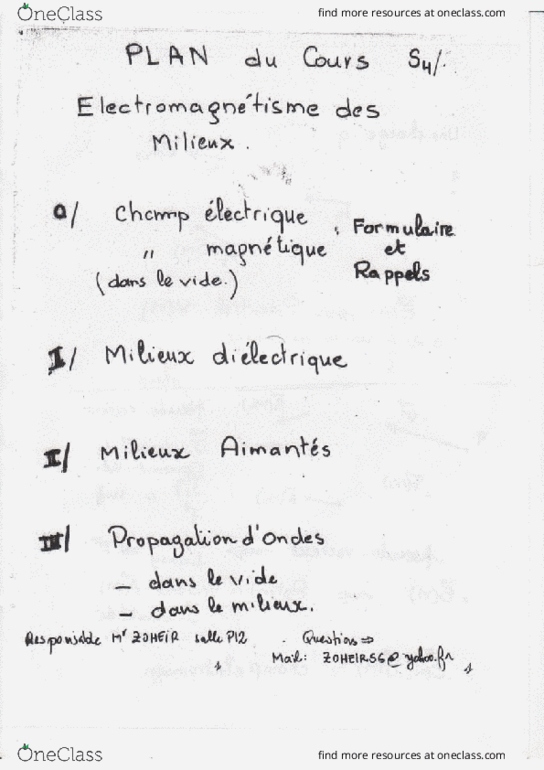 OneClass
find more resources at oneclass.com
PLAN du Cours S4/.
Electromagnétisme des
Milieux.
0/ Champ électrique
" magnétique
(dans le vide.)
: Formulaire
et
Rappels
I/ Milieux diélectrique
II/ Milieux Aimantés
III/ Propagation d'Ondes
– dans le vide
– dans le milieux.
Responsable Mr ZOHEIR salle P12 . Questions ⇒
Mail: ZOHEIR56@yahoo.fr
OneClass
find more resources at oneclass.com